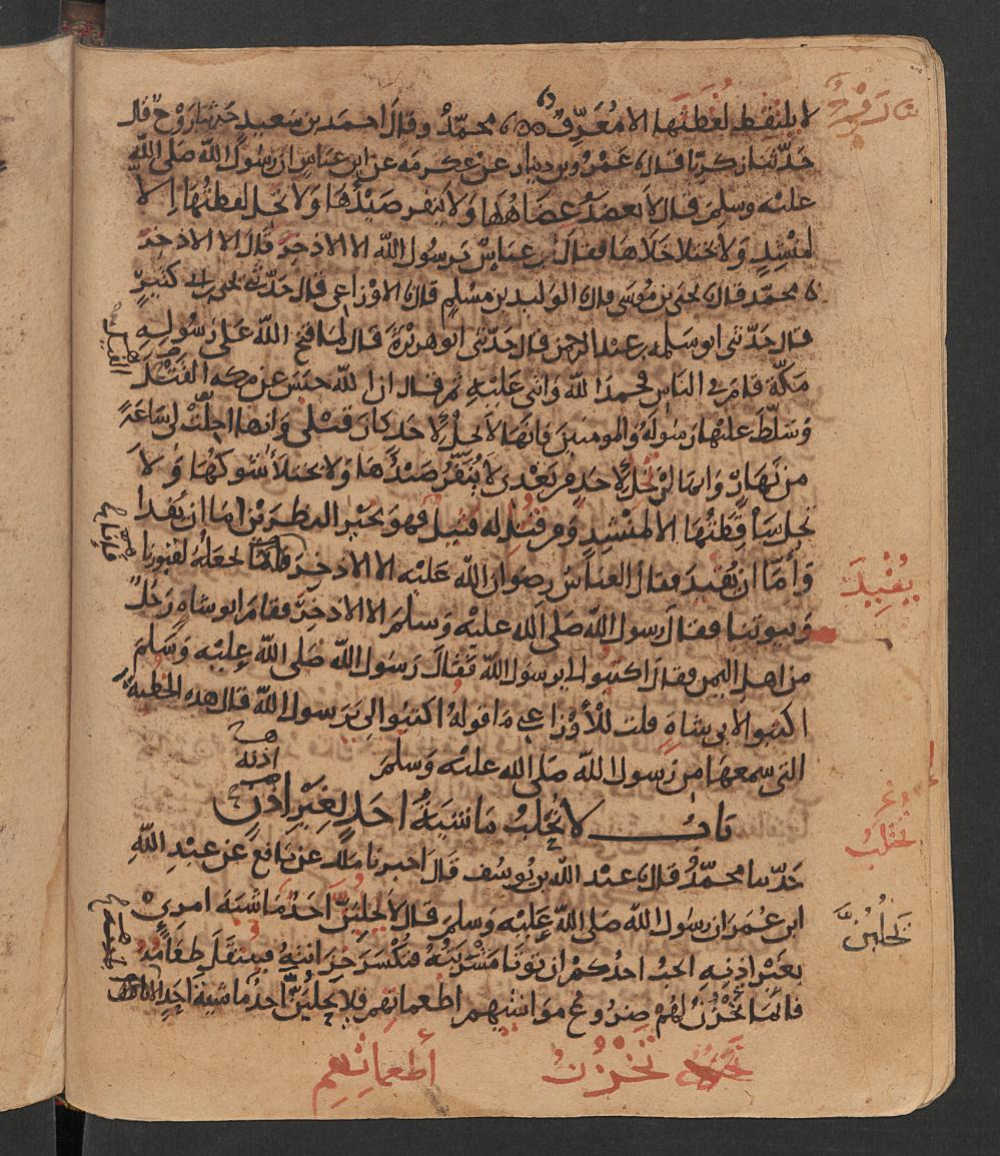 لا يلتقط لقطتها الا معرف محمد وقال احمد بن سعيد حدثنا روح قال
حدثنا زكريا قال عمرو بن دينار عن عكرمه عن ابن عباس ان رسول الله صلى الله
عليه وسلم قال لا يعضد عضاهها ولا ينفر صيدها ولا تحل لقطتها الا
لمنشد ولا يختلا خلاها فقال عباس يرسول الله الا الاذخر قال الا الاذخر
محمد قال يحيى بن موسى قال الوليد بن مسلم قال الاوزاعي قال حدثني يحيى بن ابي كثير
قال حدثني ابو سلمه بن عبد الرحمن قال حدثني ابو هريرة قال لما فتح الله على رسوله
مكة قام في الناس فحمد الله واثنى عليه ثم قال ان الله حبس عن مكه القتل
وسلط عليها رسوله والمومنين فانها لا تحل لاحد كان قبلي وانها احلت لي ساعة
من نهار وانها لن تحل لاحد من بعدي لا ينفر صيدها ولا يختلا شوكها ولا
تحل ساقطتها الا لمنشد ومن قتل له قتيل فهو بخير النظرين اما ان يفدا
واما ان يقيد فقال العباس رضوان الله عليه الا الاذخر فانما نجعله لقبورنا
وبيوتنا فقال رسول الله صلى الله عليه وسلم الا الاذخر فقام ابو شاه رجل
من اهل اليمن فقال اكتبوا لي يرسول الله فقال رسول الله صلى الله عليه وسلم
اكتبوا لابي شاه قلت للاوزاعي ما قوله اكتبوا لي يرسول الله قال هذه الخطبة
التي سمعها من رسول الله صلى الله عليه وسلم
اذنه
باب لا تحلب ماشية احد بغير اذن
حدثنا محمد قال عبد الله بن يوسف قال اخبرنا ملك عن نافع عن عبد الله
ابن عمر ان رسول الله صلى الله عليه وسلم قال لا يحلبن احد ماشية امرئ
بغير اذنه ايحب احدكم ان توتا مشربته فتكسر خزانته فينتقل طعامه
فانما تخزن لهم ضروع مواشيهم اطعماتهم فلا يحلبن احد ماشية احد الا باذنه
القتل
يفيدك
تحتلب
تحلبن
تخزن
أطعماتهم